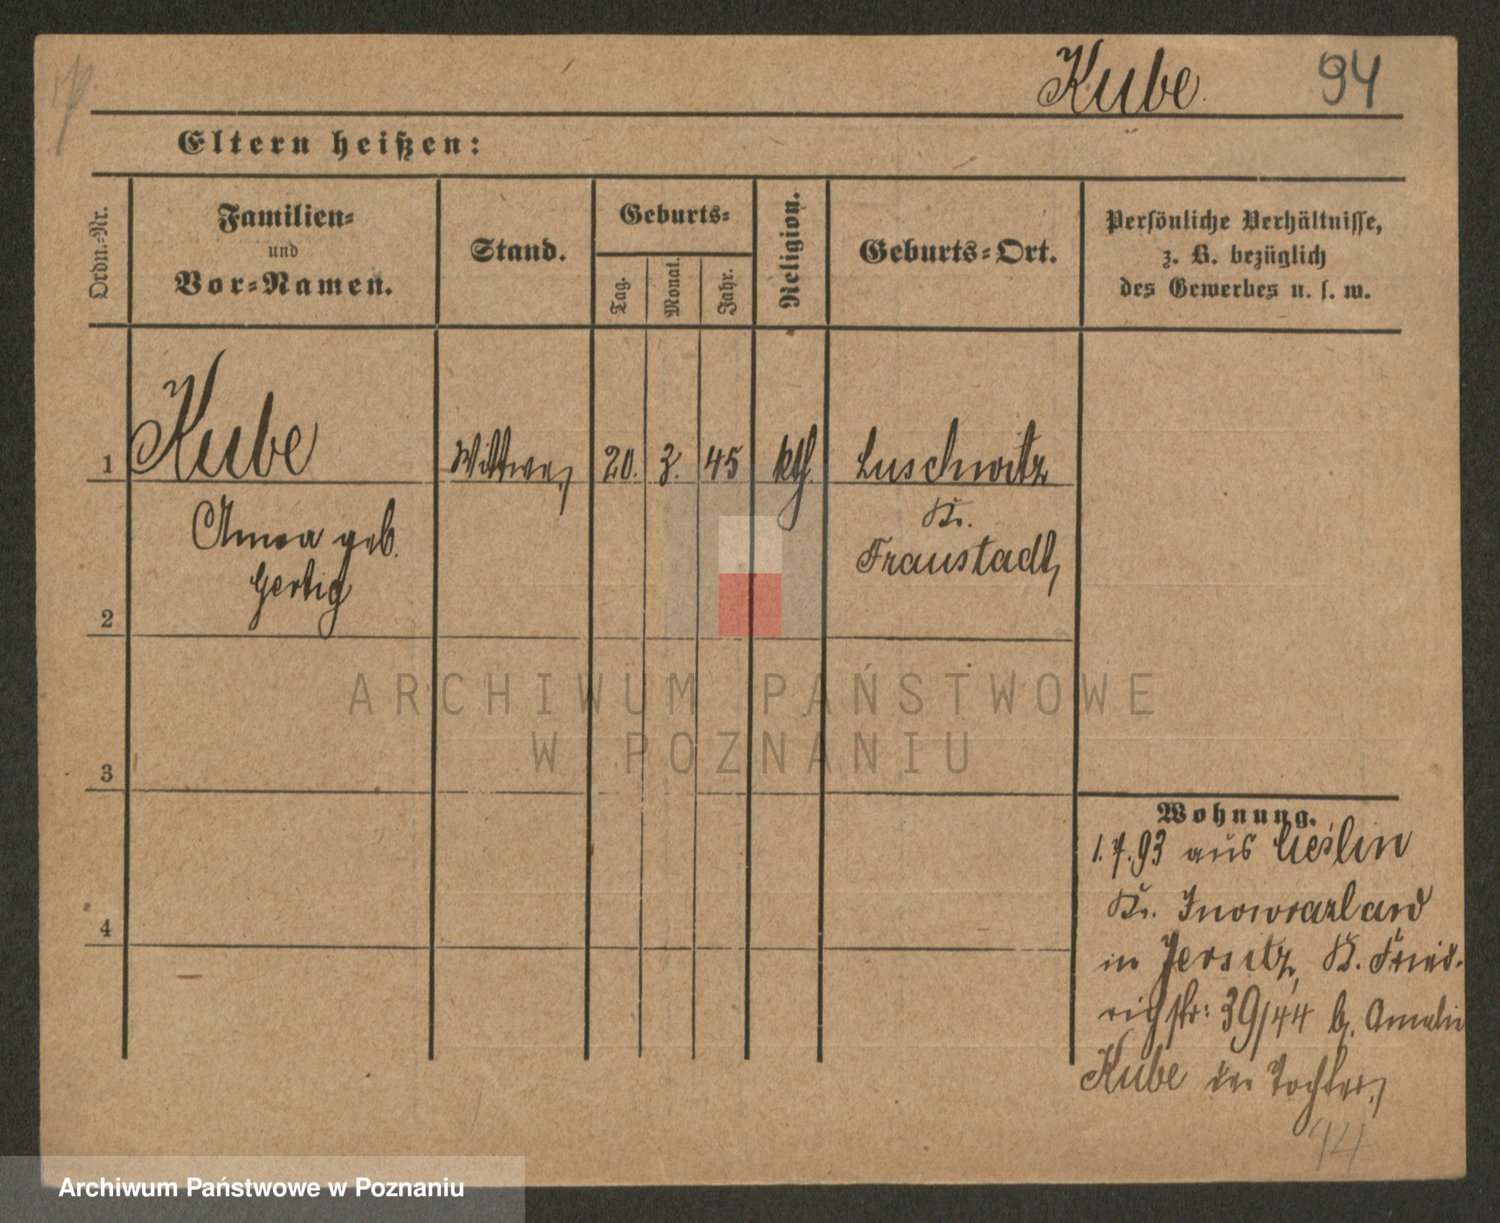 Kube. 94
Eltern heißen:
Ordn.-Nr.
Familien-
und
Vor-Namen.
Stand.
Geburts-
Tag.
Monat.
Jahr.
Religion.
Geburts-Ort.
Persönliche Verhältnisse,
z. B. bezüglich
des Gewerbes u. s. w.
1 Kube Wittwe, 20. 3. 45 kth. Luschwitz
Anna geb. Kr.
Gertig Fraustadt,
2
ARCHIWUM PAŃSTWOWE
W POZNANIU
3
Wohnung.
1.7.93 aus
4 Kr. Inowrazlaw
in Jersitz, Kl. Fried-
richstr: 39/44 b. Amalie
Kube der Tochter,
94
Archiwum Państwowe w Poznaniu